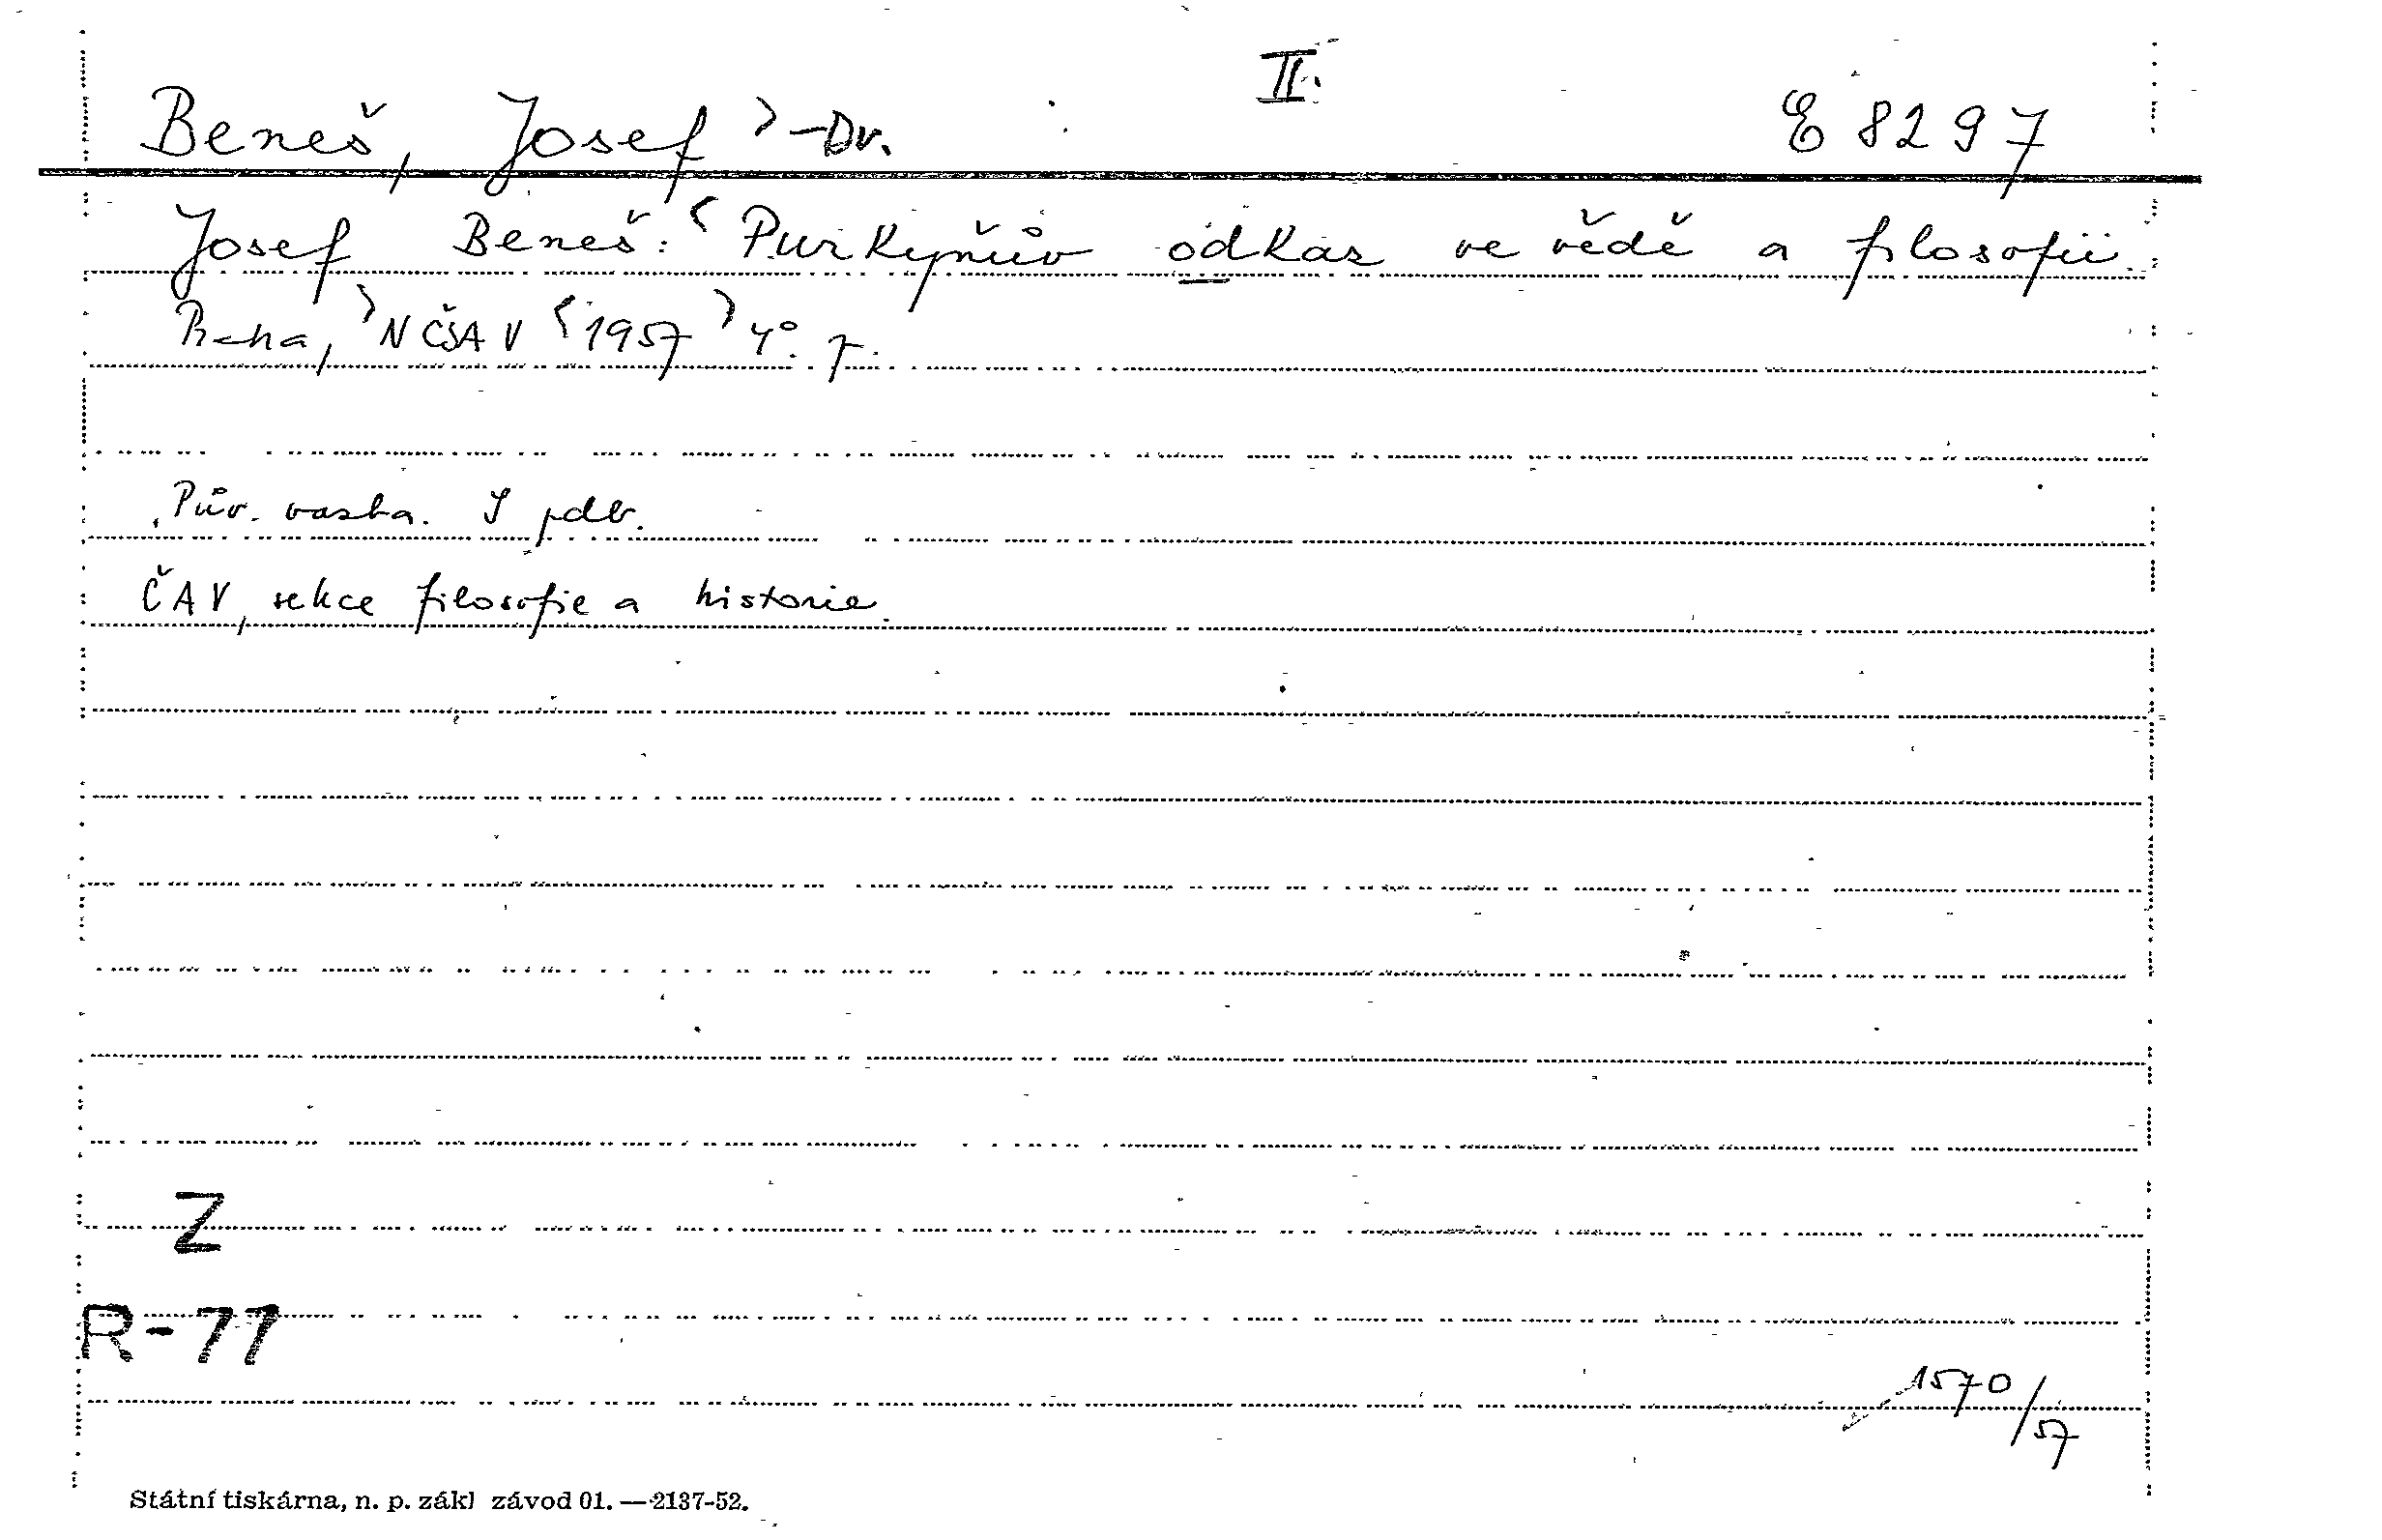 II.
Beneš, Josef > -Dr. E 8297
Josef Beneš: < Purkyňův odkaz ve vědě a filosofii.
Praha, > NČSAV < 1957 > 4°.
Pův. vazba. S pdb.
ČAV, sekce filosofie a historie.
Z
R-77
1570/57
Státní tiskárna, n. p. zákl závod 01. — 2137-52.